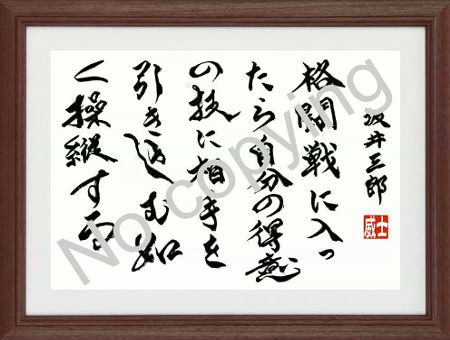 坂井三郎
格闘戦に入っ
たら自分の得意
の技に相手を
引き込む如
く操縦す
威士
No copying